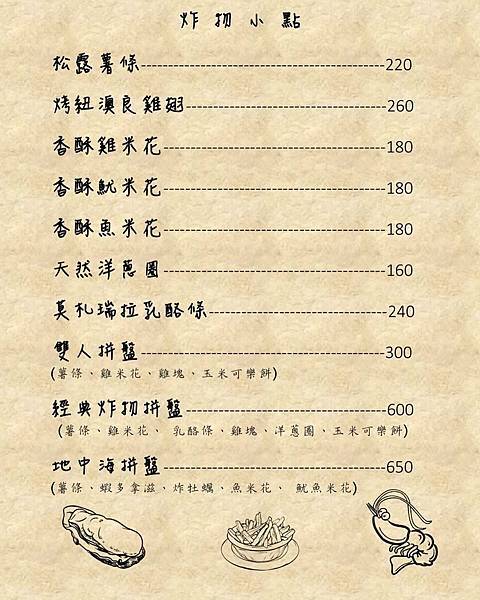 炸物小點
松露薯條------------------------------------220
烤紐澳良雞翅------------------------------260
香酥雞米花---------------------------------180
香酥魷米花---------------------------------180
香酥魚米花---------------------------------180
天然洋蔥圈---------------------------------160
莫札瑞拉乳酪條---------------------------240
雙人拼盤------------------------------------300
(薯條、雞米花、雞塊、玉米可樂餅)
經典炸物拼盤------------------------------600
(薯條、雞米花、 乳酪條、雞塊、洋蔥圈、玉米可樂餅)
地中海拼盤---------------------------------650
(薯條、蝦多拿滋、炸牡蠣、魚米花、 魷魚米花)